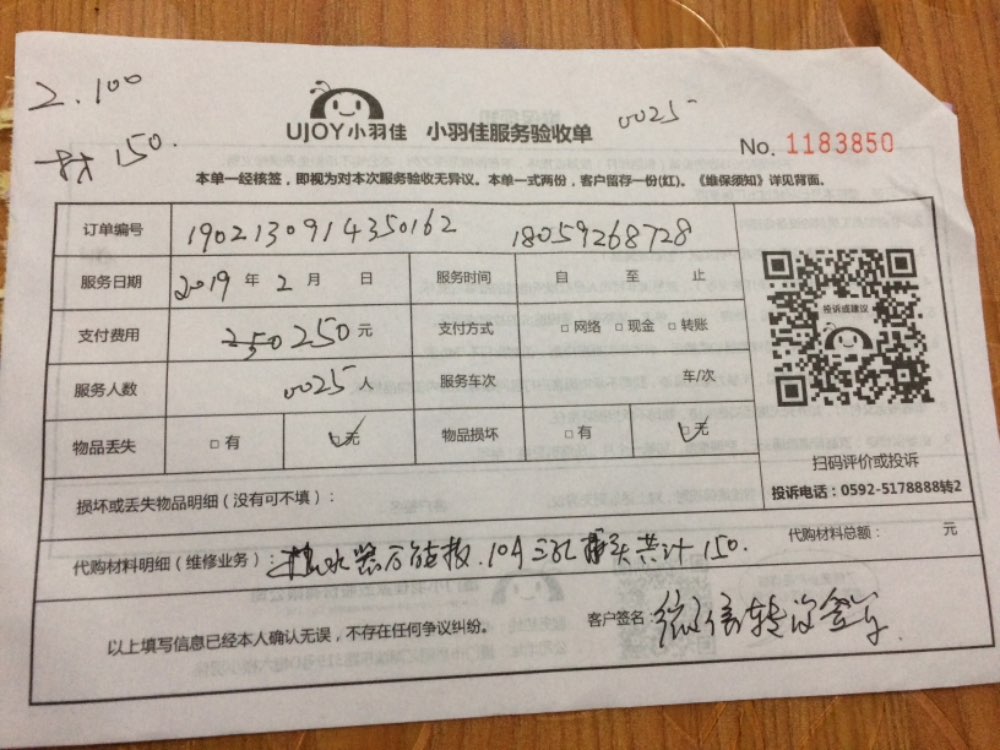 2.100
150.
UJOY小羽佳 小羽佳服务验收单
0025
No. 1183850
本单一经核签，即视为对本次服务验收无异议。本单一式两份，客户留存一份(红)。《维保须知》详见背面。
订单编号 1902130914350162 18059268728
服务日期 2019 年 2 月 日 服务时间 自 至 止
支付费用 250 250 元 支付方式 □ 网络 □ 现金 □ 转账
服务人数 0025 人 服务车次 车/次
物品丢失 □ 有 □ 无 物品损坏 □ 有 □ 无
投诉或建议
扫码评价或投诉
投诉电话：0592-5178888转2
损坏或丢失物品明细（没有可不填）：
代购材料明细（维修业务）：热水器万能板.10A三孔插头共计150.
代购材料总额： 元
以上填写信息已经本人确认无误，不存在任何争议纠纷。
客户签名：微信转没签字.